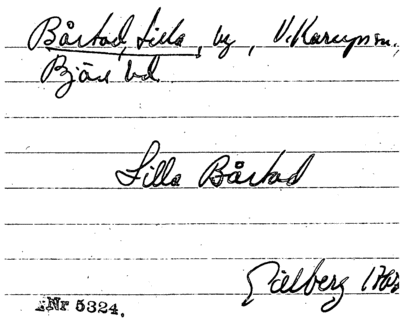 Båstad, Lilla, by, V. Karups sn.,
Bjäre hd
Lilla Båstad
Gillberg 1765
Nr 5324.